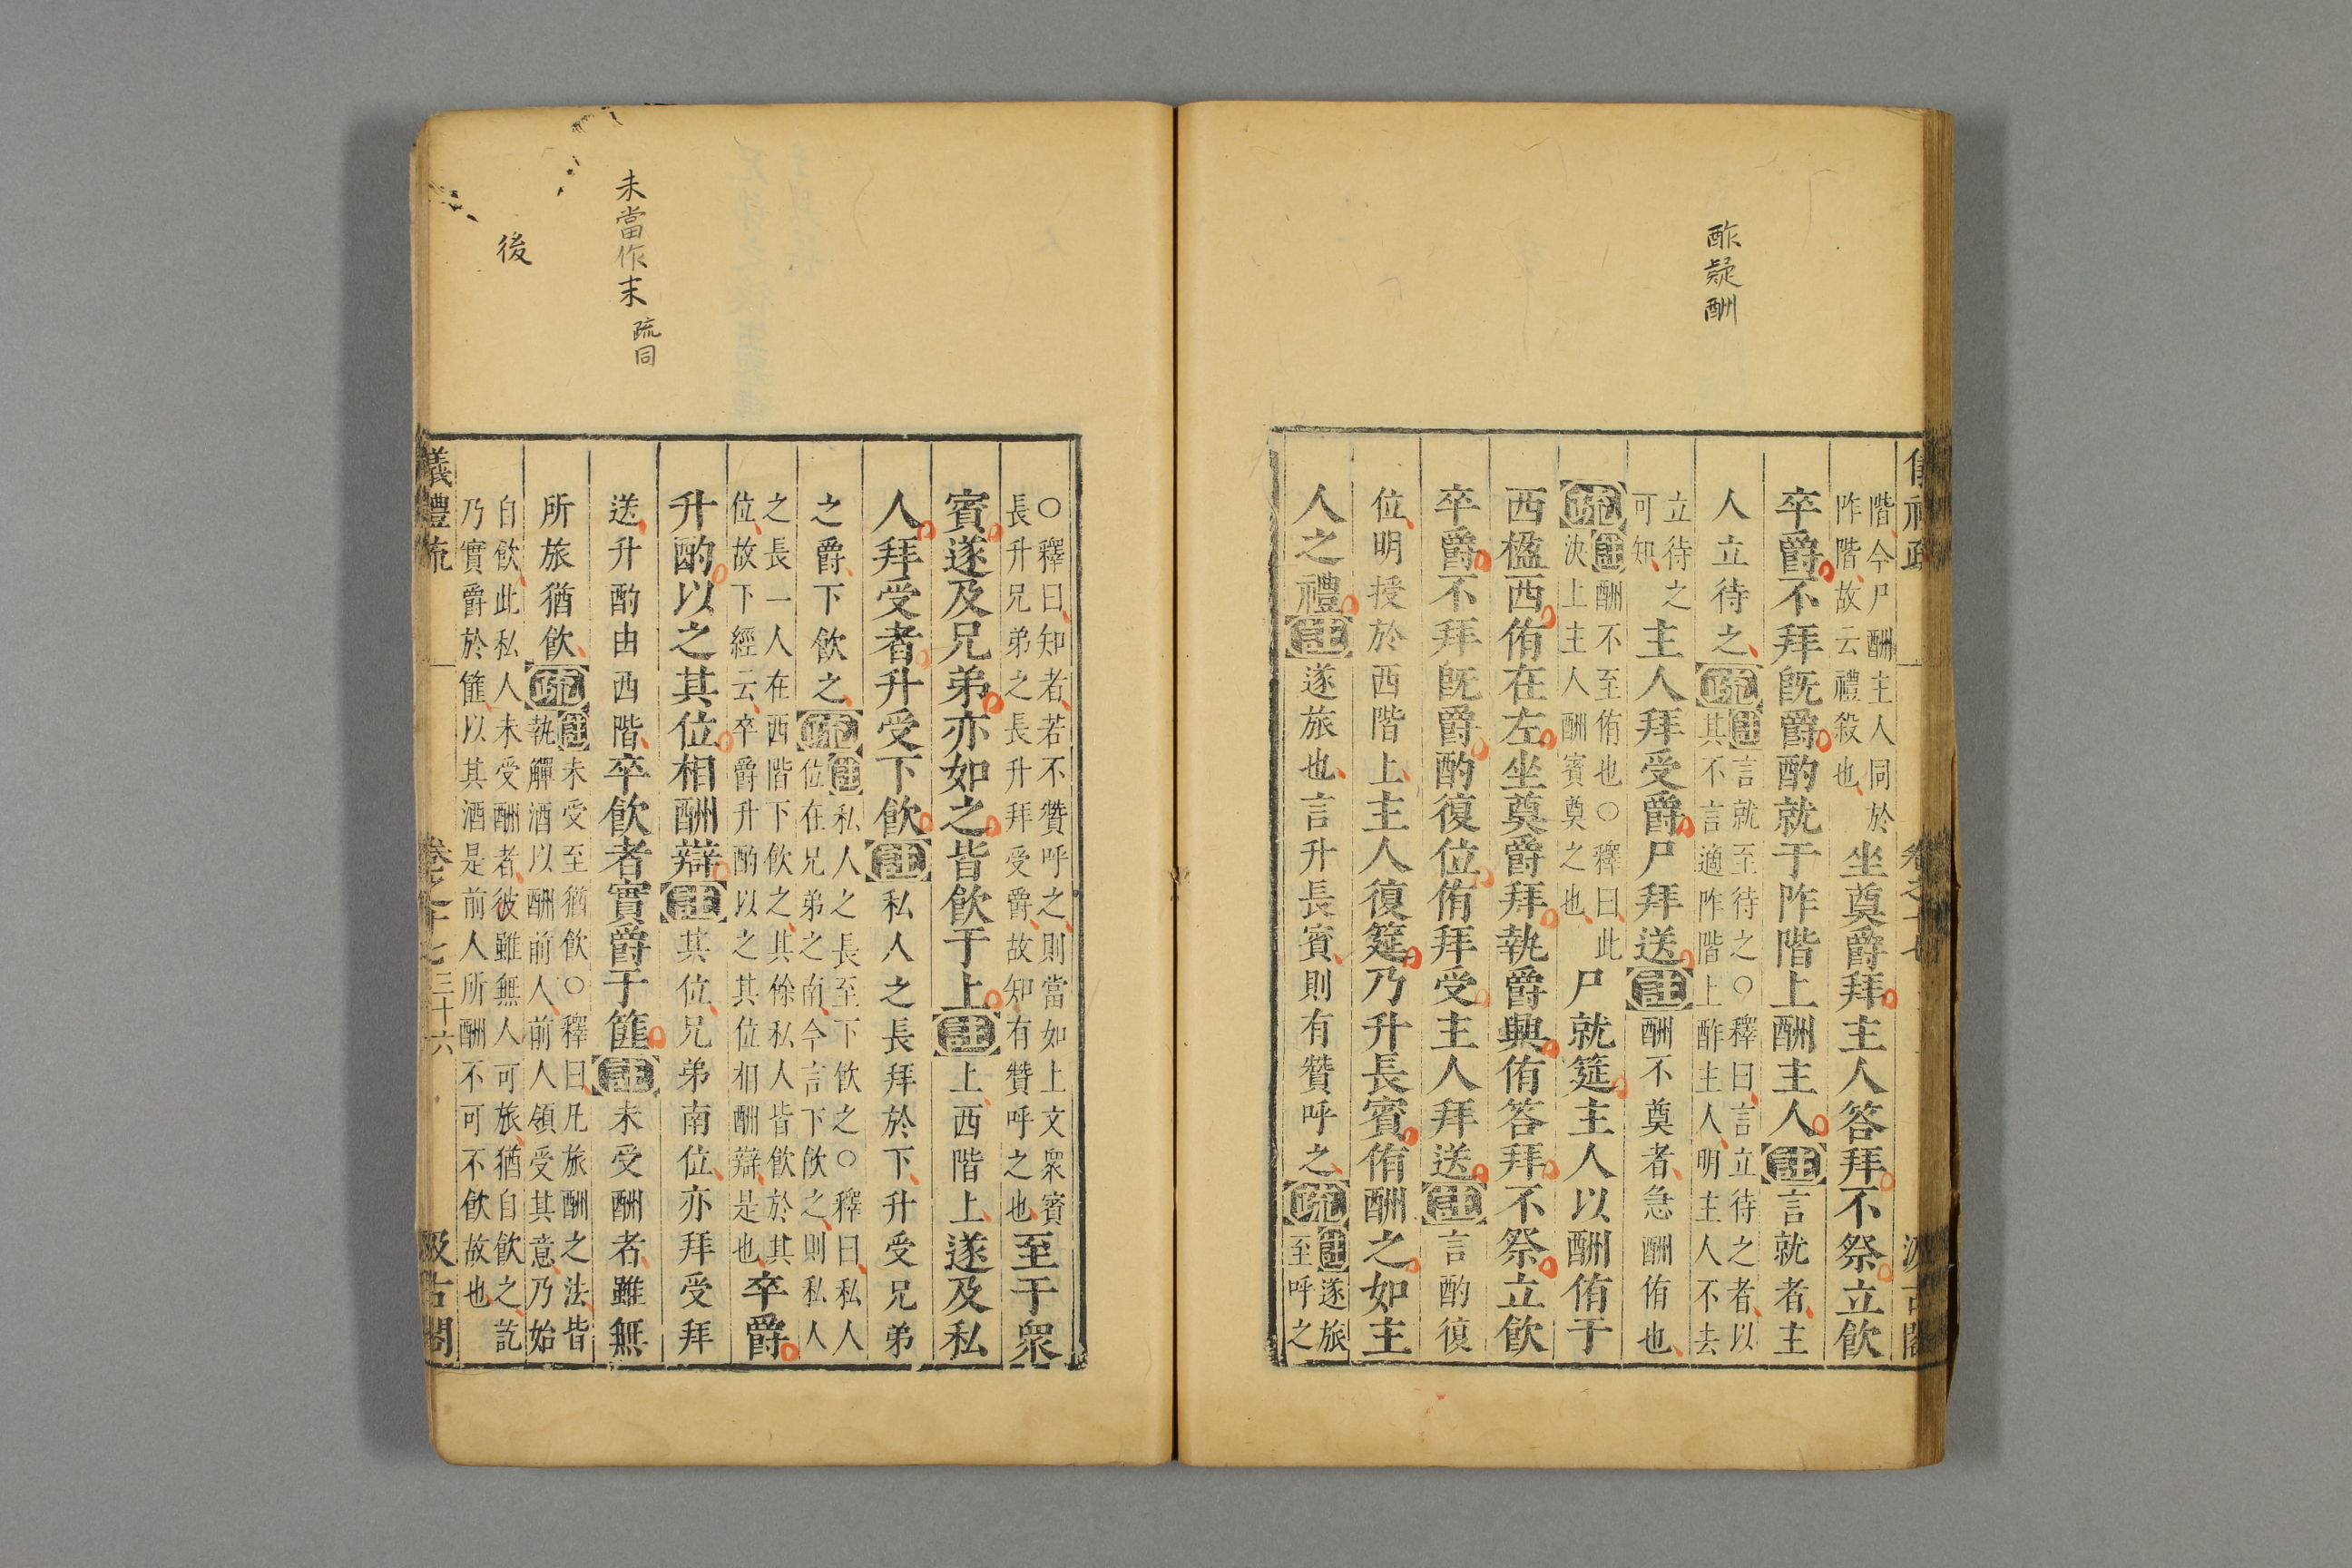 酢疑酬
階今尸酬主人同於
阼階故云禮殺也
坐奠爵拜主人答拜不祭立飲
卒爵不拜旣爵酌就于阼階上酬主人註言就者主
人立待之疏註言就至待之○釋曰言立待之者以
其不言適阼階上酢主人明主人不去
立待之
可知
主人拜受爵尸拜送註酬不奠者急酬侑也
疏註酬不至侑也○釋曰此
決上主人酬賓奠之也
尸就筵主人以酬侑于
西楹西侑在左坐奠爵拜執爵興侑答拜不祭立飲
卒爵不拜旣爵酌復位侑拜受主人拜送註言酌復
位明授於西階上主人復筵乃升長賓侑酬之如主
人之禮註遂旅也言升長賓則有贊呼之疏註遂旅
至呼之
未當作末
疏同
後
○釋曰知者若不贊呼之則當如上文衆賓
長升兄弟之長升拜受爵故知有贊呼之也
至于衆
賓遂及兄弟亦如之皆飲于上註上西階上遂及私
人拜受者升受下飲註私人之長拜於下升受兄弟
之爵下飲之疏註私人之長至下飲之○釋曰私人
位在兄弟之南今言下飲之則私人
之長一人在西階下飲之其餘私人皆飲於其
位故下經云卒爵升酌以之其位相酬辯是也
卒爵
升酌以之其位相酬辯註其位兄弟南位亦拜受拜
送升酌由西階卒飲者實爵于篚註未受酬者雖無
所旅猶飲疏註未受至猶飲○釋曰凡旅酬之法皆
執觶酒以酬前人前人領受其意乃始
自飲此私人未受酬者彼雖無人可旅猶自飲之訖
乃實爵於篚以其酒是前人所酬不可不飲故也
儀禮疏 卷之十七 三十六 汲古閣